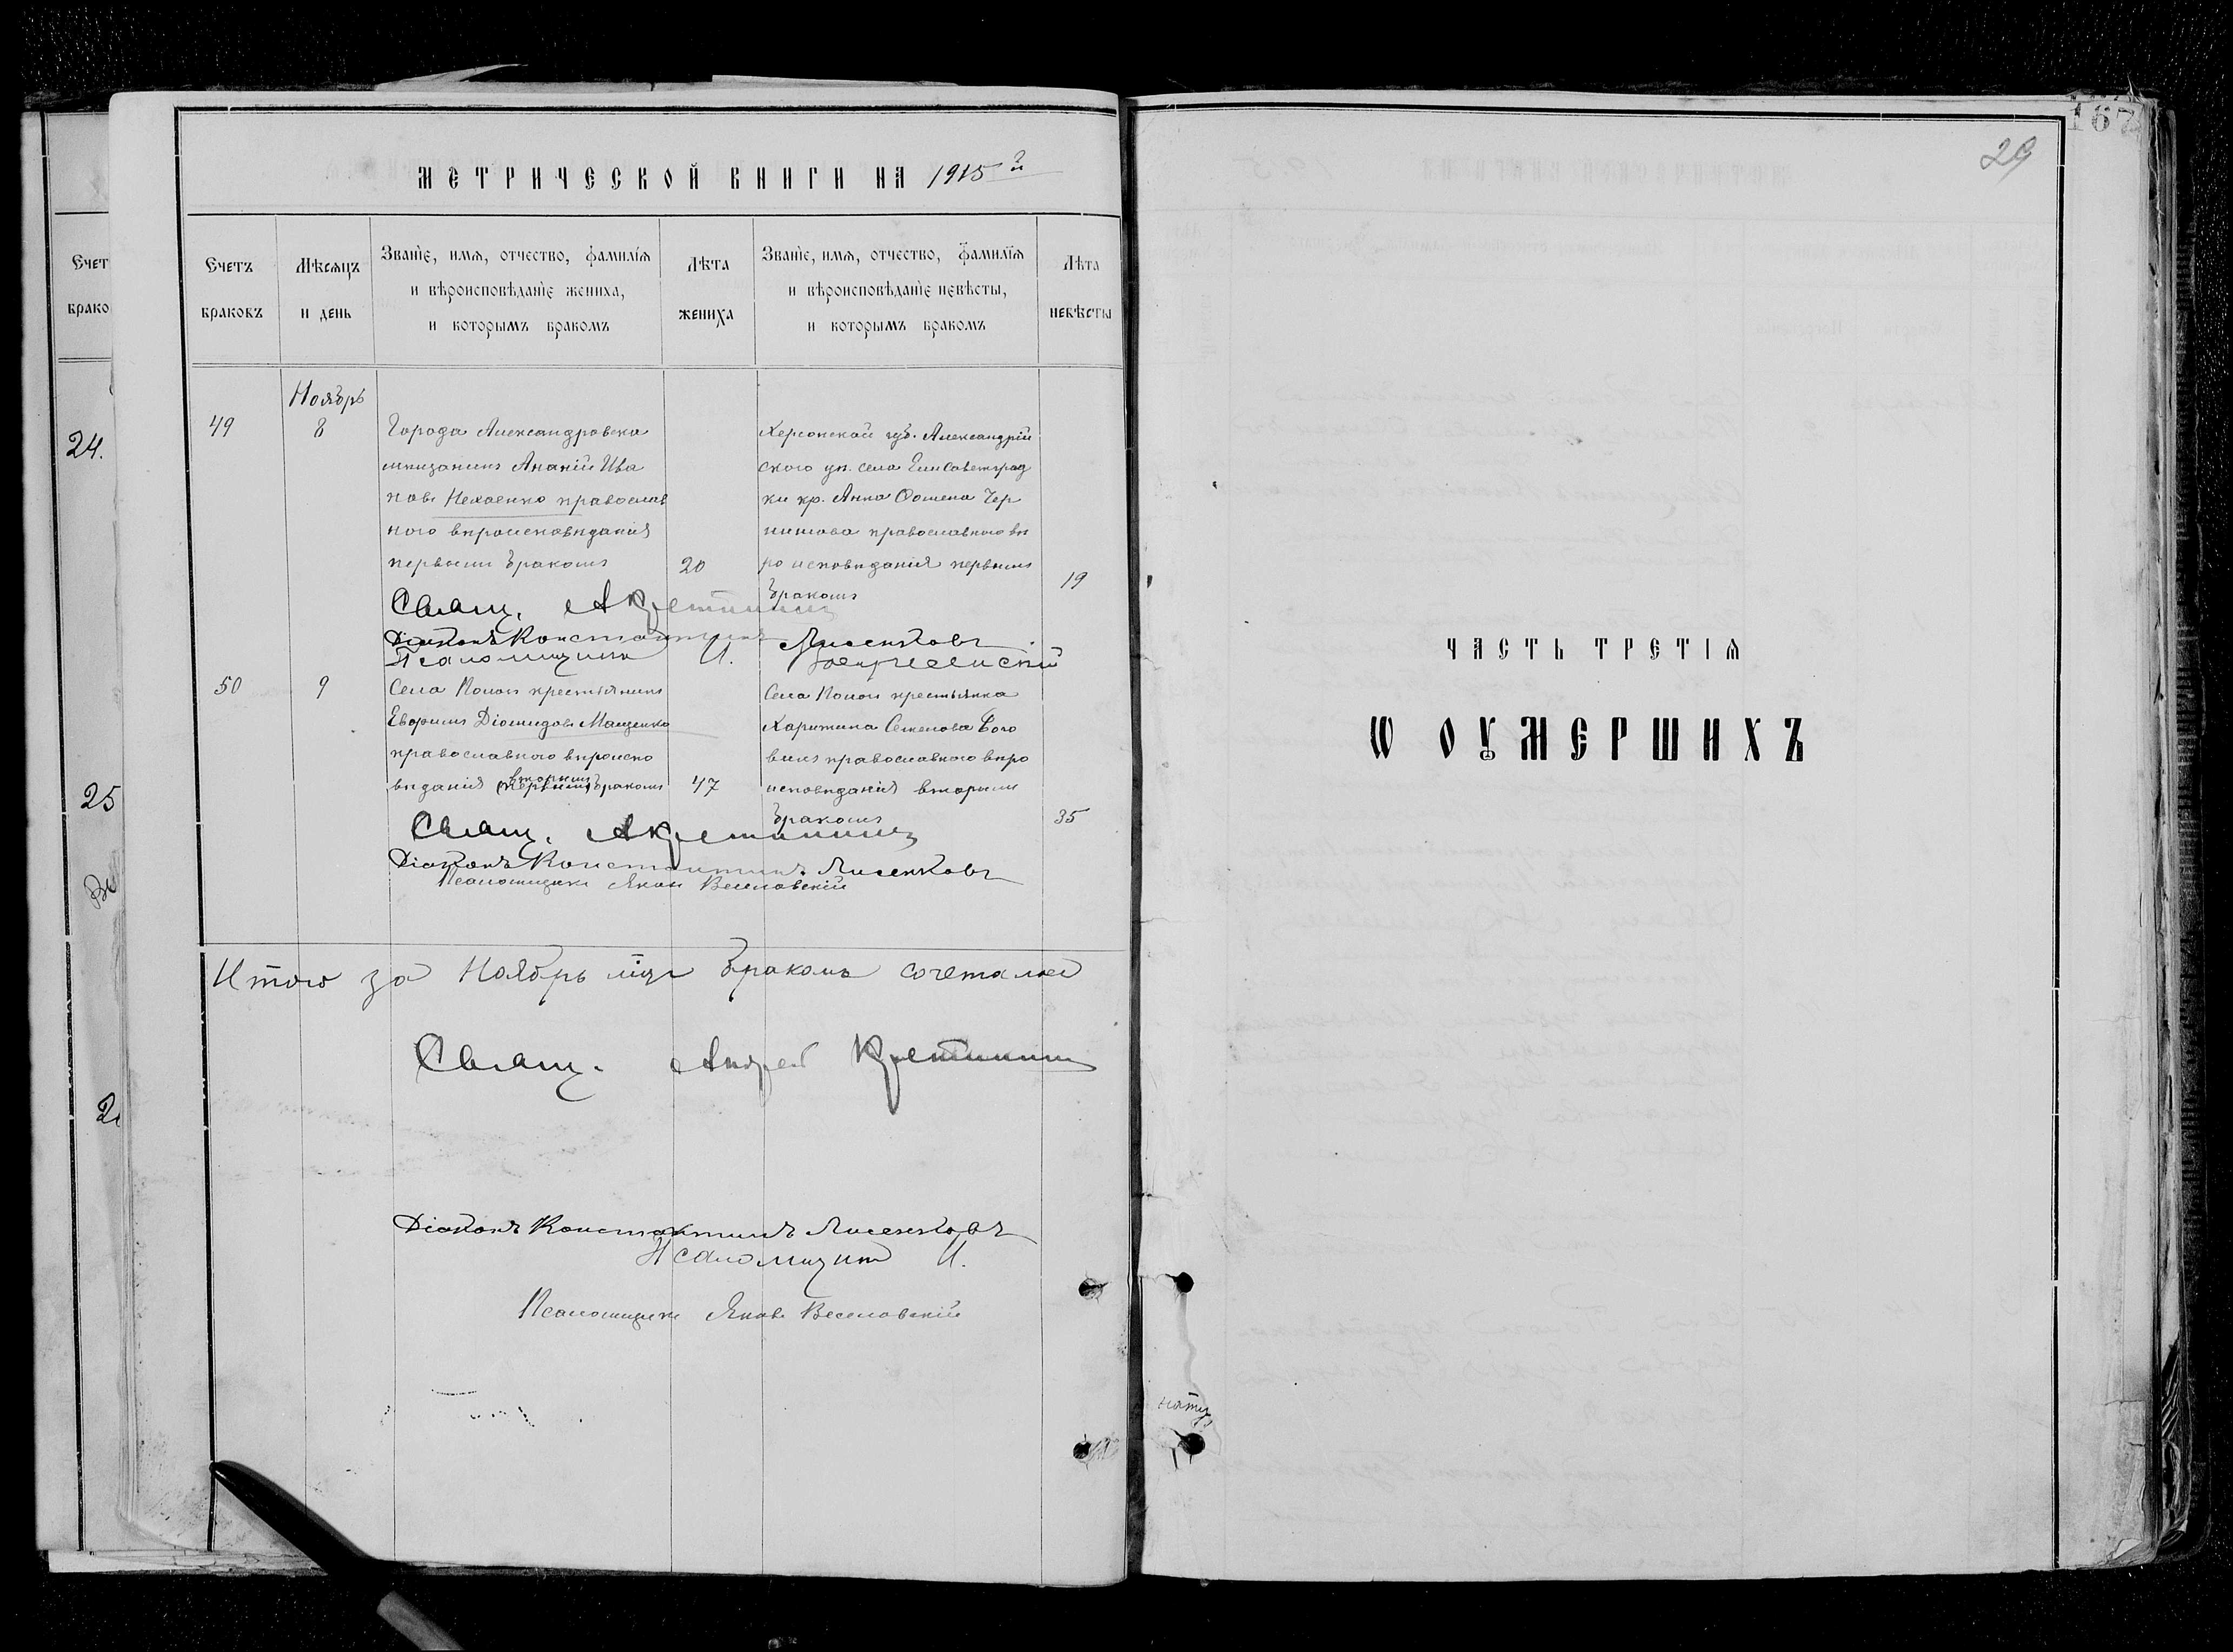 МЕТРИЧЕСКОЙ КНИГИ НА 1915 й
Счетъ браковъ
Мѣсяцъ и день
Званіе, имя, отчество, фамилія
и вѣроисповѣданіе жениха,
и которымъ бракомъ
Лѣта жениха
Званіе, имя, отчество, фамилія
и вѣроисповѣданіе невѣсты,
и которымъ бракомъ
Лѣта невѣсты
Ноябрь
49
8
Города Александровска
мѣщанинъ Ананій Ива
новъ Нехаенко православ
ного вѣроисповѣданія
первымъ бракомъ
20
Херсонской губ. Александрій
ского уѣ. села Елисаветград
ки кр. Анна Фомина Чер
нишова православного вѣ
роисповѣданія первымъ
бракомъ
19
Свящ. А Кретининъ
Діаконъ Константинъ Лисенковъ
Псаломщикъ И.
50
9
Села Пологъ крестьянинъ
Евфимъ Діомидовъ Мащенко
православного вѣроиспо
вѣданія первымъ вторымъ бракомъ
47
Села Пологъ крестьянка
Харитина Семенова
православного вѣро
исповѣданія вторымъ
бракомъ
35
Свящ. А Кретининъ
Діаконъ Константинъ Лисенковъ
Псаломщикъ Яковъ Веселовскій
Итого за Ноябрь мцъ бракомъ сочетался
Свящ. Андрей Кретининъ
Діаконъ Константинъ Лисенковъ
Псаломщикъ И.
Псаломщикъ Яковъ Веселовскій
Счет
брако
24.
25
167
29
ЧАСТЬ ТРЕТІЯ
Ѡ ОУМЕРШИХЪ